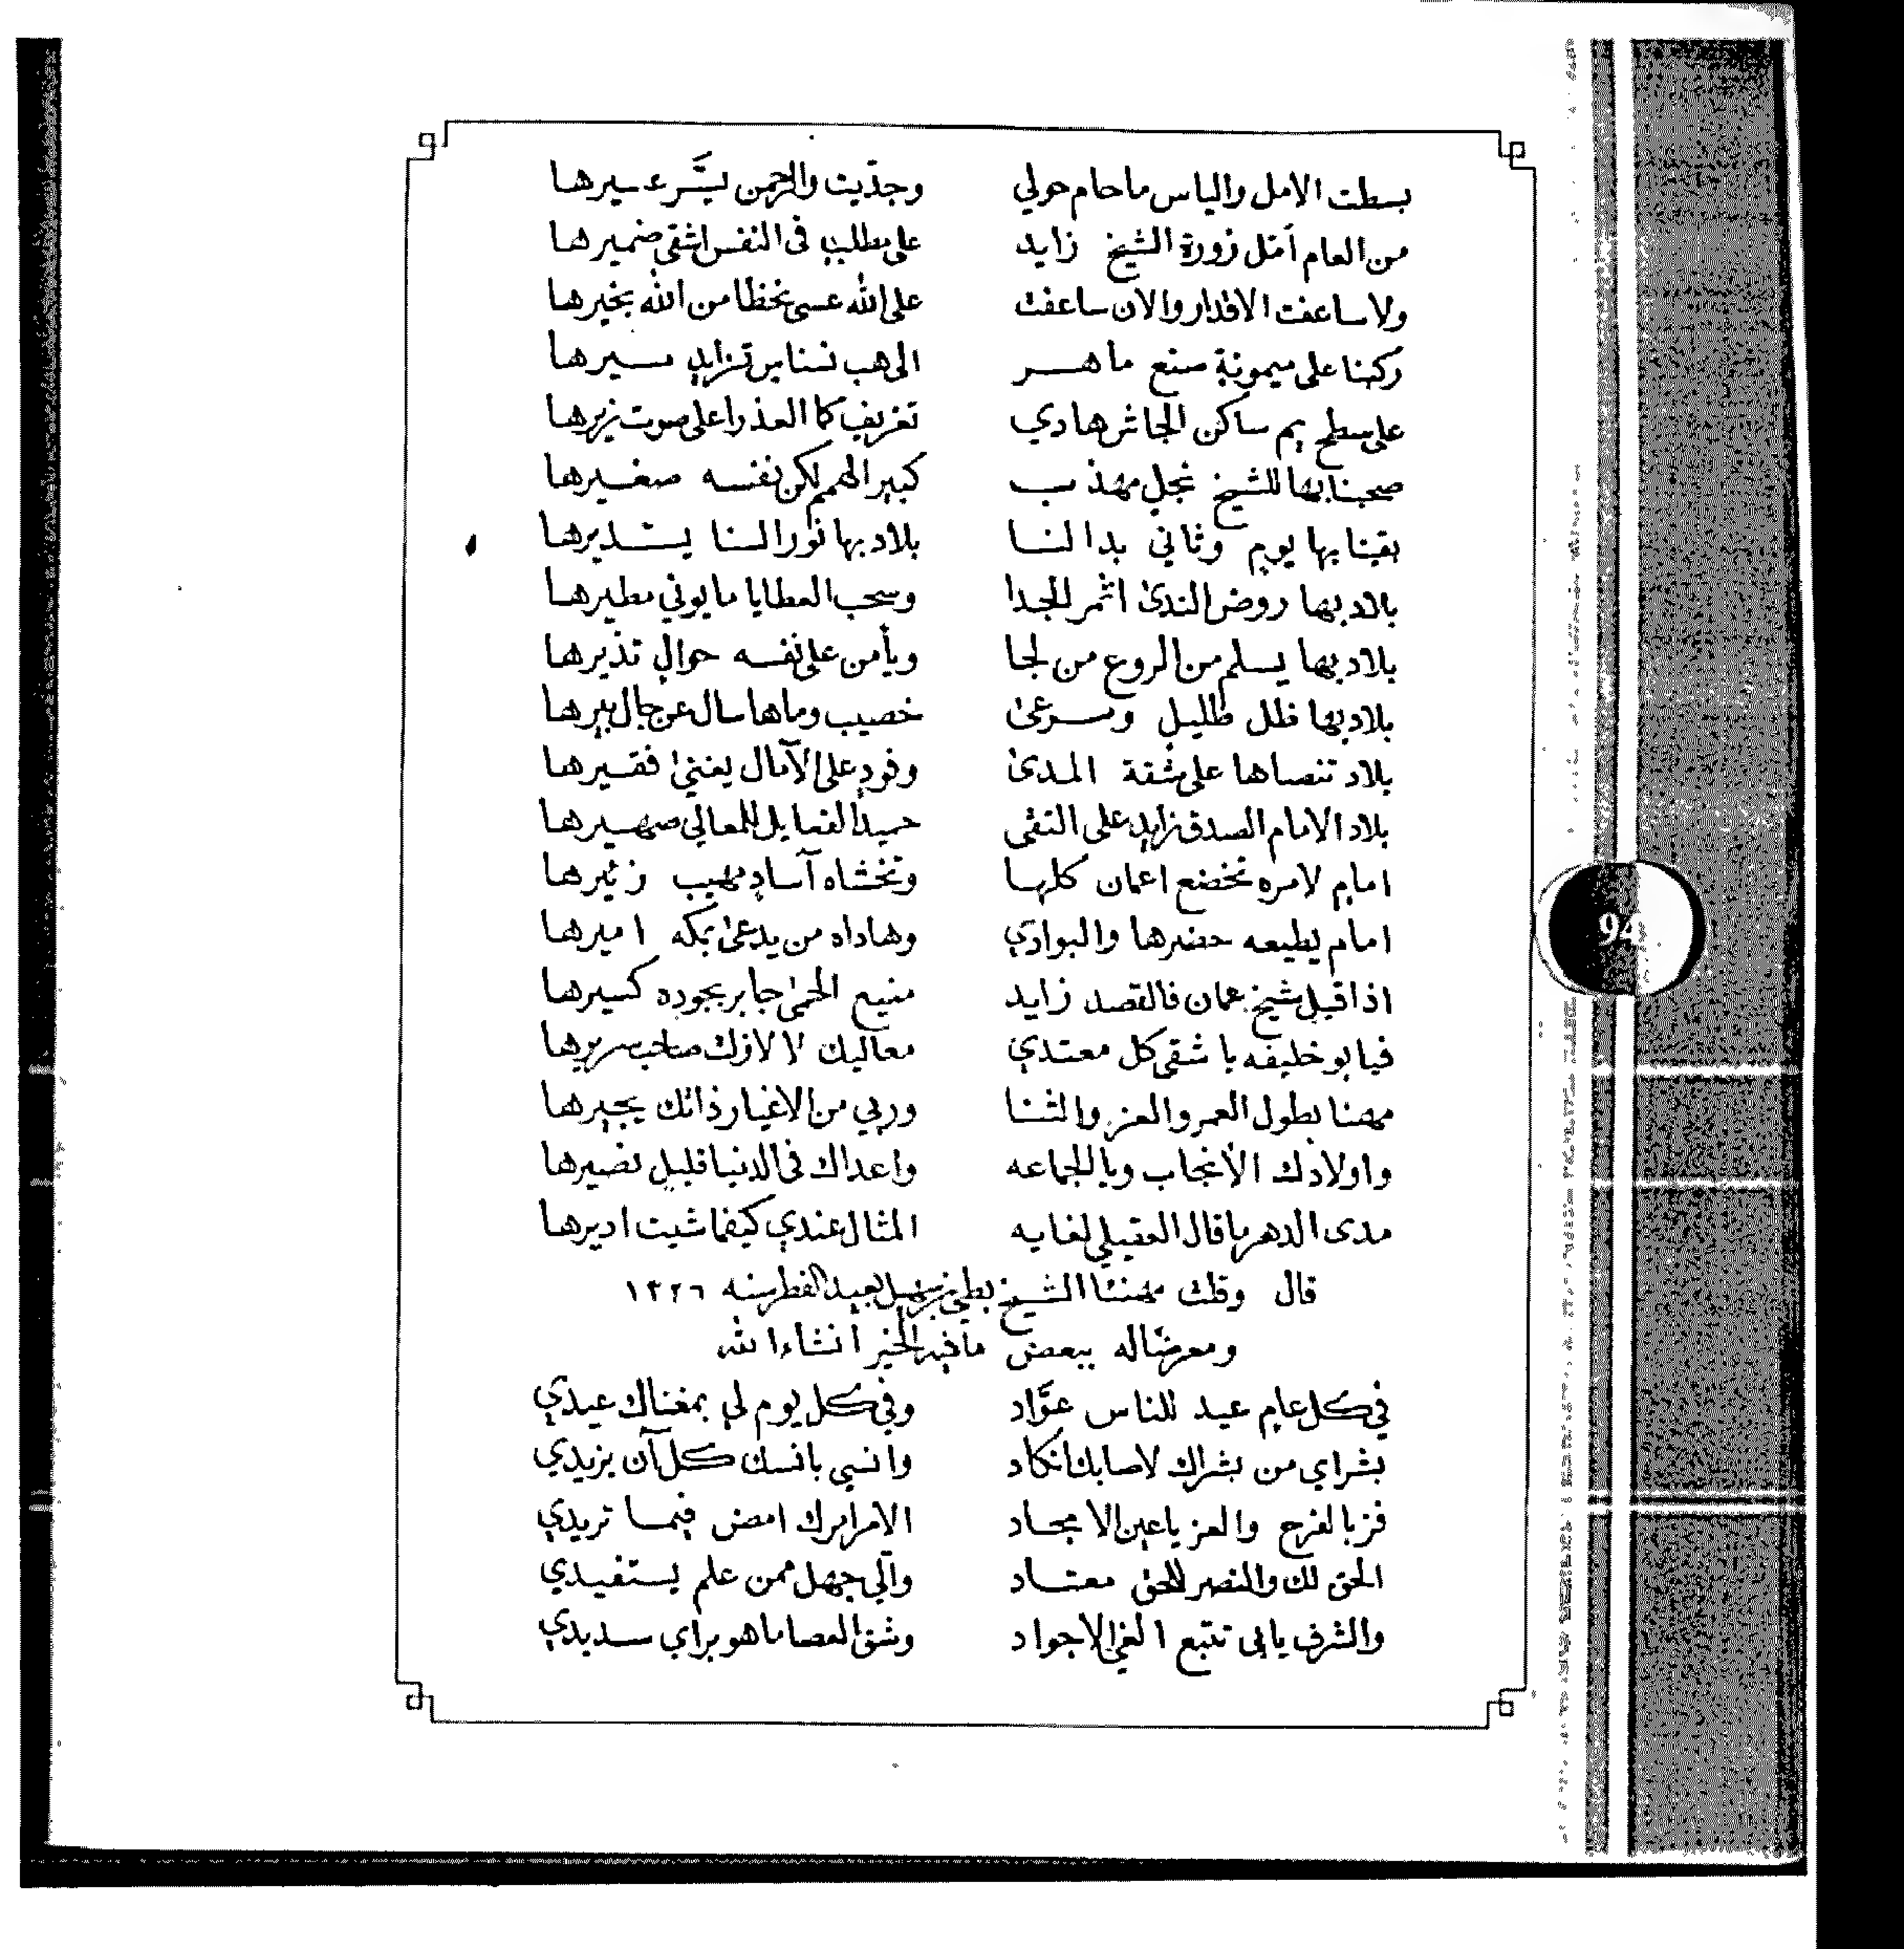 بسطت الامل والياس ماحام حولي وجذيت والرحمن ليسّر عسيرها
من العام أمّل زورة الشيخ زايد على مطلب في النفس اشقى ضميرها
ولا ساعفت الاقدار والان ساعفت على الله عسى نحظا من الله بخيرها
ركبنا على ميمونة صنع ماهر الى هب نسناس تزايد مسيرها
على سطح يم ساكن الجاش هادي تغريف كما العذرا على صوت زيرها
صحبنا بها للشيخ نجل مهذب كبير الهمم لكن نفسه صغيرها
بقينا بها يوم وثاني بدا لنا بلاد بها نور السنا يستديرها
بلاد بها روض الندى اثمر للجدا وسحب العطايا مايوني مطيرها
بلاد بها يسلم من الروع من لجا ويأمن على نفسه حوال نذيرها
بلاد بها ظل ظليل ومرعى خصيب وماها سال عن جال بيرها
بلاد تنصاها على شقة المدى وفود على الآمال يغني فقيرها
بلاد الامام الصدق زايد على النقى حميد الفعايل للمعالي صهيرها
امام لامره تخضع اعمان كلها وتخشاه آساد مهيب زئيرها
امام يطيعه حضرها والبوادي وهاداه من يدعى بمكه اميرها
اذا قيل شيخ عمان فالقصد زايد منيع الحمى جابر بجوده كسيرها
فيا بو خليفه يا شقى كل معتدي معاليك لا لازلت صاحب سريرها
مهنا بطول العمر والعز والثنا وربي من الاغيار ذاتك يجيرها
واولادك الأنجاب ويا الجماعه واعداك في الدنيا قليل نصيرها
مدى الدهر ما قال العقيلي لغايه المثال عندي كيفما شيت اديرها
قال وقلت مهنئا الشيخ بطي بن سهيل بعيد الفطر سنه ١٣٢٦
ومعرضا له ببعض مافيه الخير انشاء الله
في كل عام عيد للناس عوّاد وفي كل يوم لي بمغناك عيدي
بشراي من بشراك لاصابك انكاد وانسي بانسك كل آن يزيدي
فز بالفرح والعز ياعين الامجاد الامر امرك امض فيما تريدي
الحق لك والنصر للحق معتاد والي جهل ممن علم يستفيدي
والشرف يابى تتبع الغي الاجواد وشق العصا ما هو براي سديدي
94